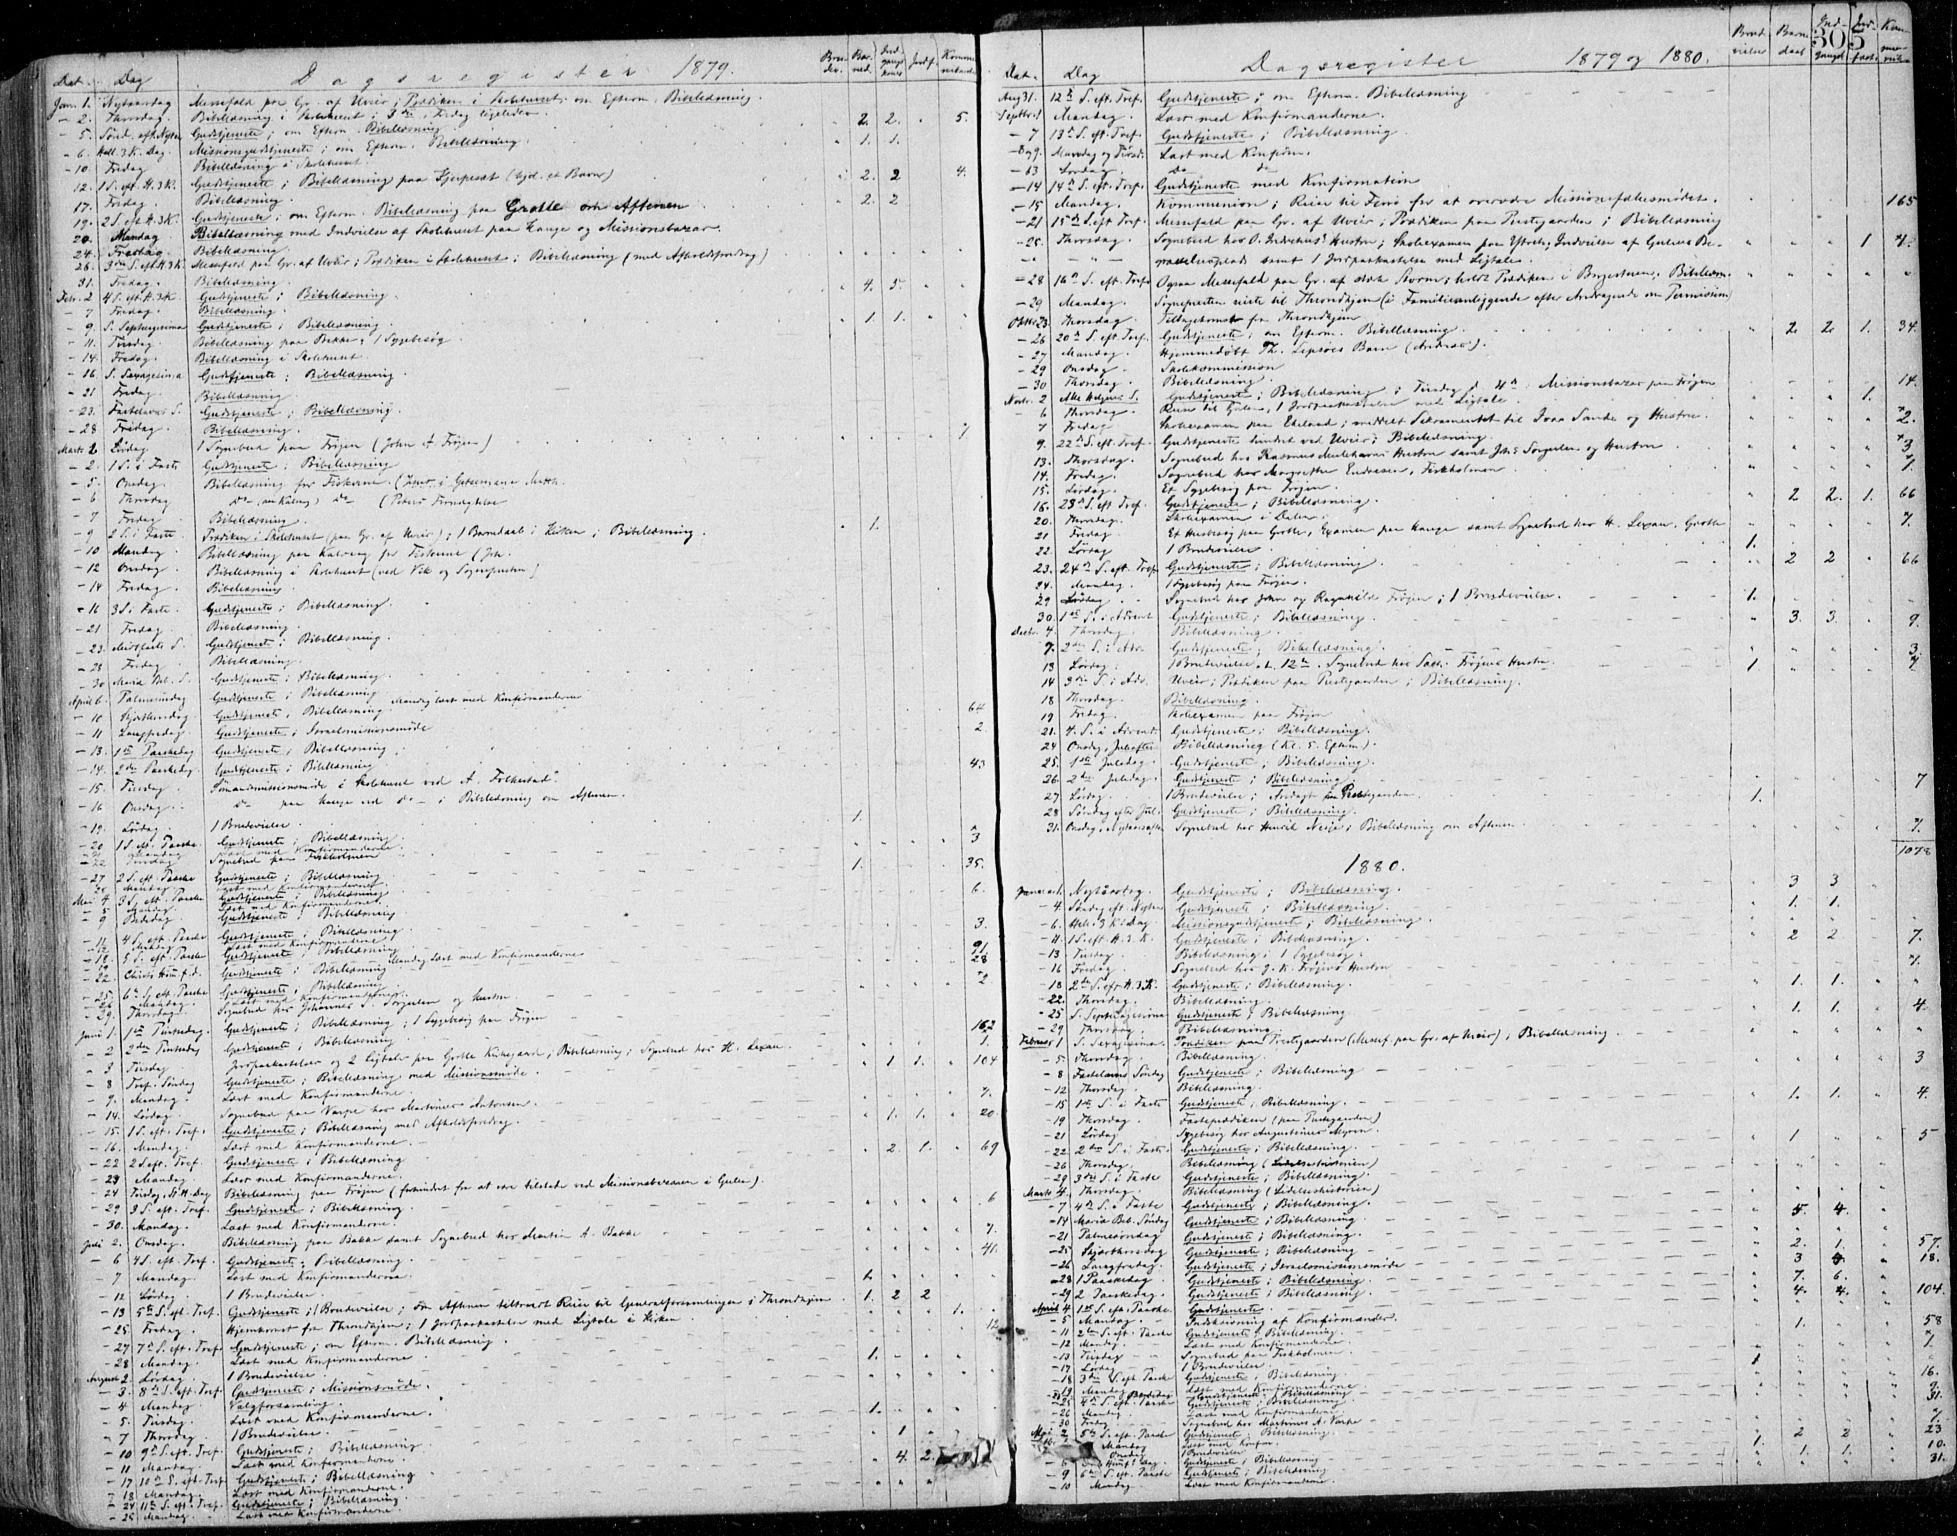 Dagsregister 1879.
Dat. Dag
Jan. 1. Nytaarsdag Messefald paa Gr. af Uveir; Prædiken i Skolehuset; om Efterm. Bibellæsning.
- 2. Thorsdag. Bibellæsning i Skolehuset; 3die, Fredag ligeledes. 2. 2. 5.
- 5. Sönd. eft. Nytaar Gudstjeneste; om Efterm. Bibellæsning 1. 1.
- 6. Hell. 3 K. Dag. Missionsgudstjeneste; om Efterm. Bibellæsning.
- 10. Fredag Bibellæsning i Skolehuset.
12. 1 S. eft. H. 3 K. Gudstjeneste; Bibellæsning paa 2. 2 4.
17. Fredag. Bibellæsning.
19. 2 S. eft H. 3 K. Gudstjeneste; om Efterm. Bibellæsning paa Grotle om Aftenen 2. 2
20. Mandag Bibellæsning med Indvielse af Skolehuset paa Hauge og Missionsbazar.
24. Fredag. Bibellæsning.
26. 3die S. eft H. 3 K. Messefald paa Gr. af Uveir; Prædiken i Skolehuset; Bibellæsning (med Afholdsforedrag)
31. Fredag. Bibellæsning.
Febr. 2 4 S. eft. H. 3 K. Gudstjeneste; Bibellæsning. 4. 5.
- 7 Fredag. Bibellæsning.
- 9. S. Septuagesima Gudstjeneste; Bibellæsning. 1. 1.
- 11. Tirsdag. Bibellæsning paa Bakke; 1 Sygebesög
- 14. Fredag. Bibellæsning i Skolehuset.
- 16 S. Sexagesima Gudstjeneste; Bibellæsning.
- 21 Fredag. Bibellæsning.
- 23. Fastelavns S. Gudstjeneste; Bibellæsning.
- 28 Fredag. Bibellæsning.
Marts 1 Lördag. 1 Sognebud paa Fröjen (John A Fröjen) 1
- 2. 1 S. i Faste Gudstjeneste; Bibellæsning
- 5. Onsdag. Bibellæsning for Fiskerne. (Jesus i Getsemane Matth.
- 6 Thorsdag Do Do (Petri Fornegtelse
- 7 Fredag. Bibellæsning.
- 9 2 S. i Faste Prædiken i Skolehuset (paa Gr. af Uveir); 1 Barnedaab i Kirken; Bibellæsning. 1.
- 10 Mandag Bibellæsning paa Kalvaag for Fiskerne (Joh.
- 12 Onsdag. Bibellæsning i Skolehuset (ved Vik og Sognepresten)
- 14 Fredag. Bibellæsning
- 16 3 S. i Faste. Gudstjeneste; Bibellæsning.
- 21 Fredag. Bibellæsning.
- 23. Midfaste S. Gudstjeneste; Bibellæsning.
- 28 Fredag Bibellæsning.
- 30 Maria Beb. S. Gudstjeneste; Bibellæsning.
April 6. Palmesöndag Gudstjeneste; Bibellæsning
- 10 Skjærthorsdag. Gudstjeneste; Bibellæsning. Mandag læst med Konfirmanderne 64
- 11 Langfredag Gudstjeneste; Israelsmissionsmöde 2
- 13. 1ste Paaskedag Gudstjeneste; Bibellæsning
- 14. 2den Paaskedag. Gudstjeneste; Bibellæsning 43
- 15. Tirsdag. Sömandsmissionsmöde i Skolehuset ved A. Folkestad.
- 16 Onsdag. Do paa Hauge ved Do; Bibellæsning om Aftenen.
- 19. Lördag. 1 Brudevielse. 1.
- 20 1 S. eft. Paaske. Gudstjeneste; Bibellæsning. 3
- 21 Mandag Læst med Konfirmanderne.
- 22 Tirsdag Sognebud paa Fiskholmen 1. 35.
- 27 2 S. eft. Paaske Gudstjeneste; Bibellæsning
- 28 Mandag Læst med Konfirmanderne.
Mai 4 3 S. eft. Paaske Gudstjeneste; Bibellæsning 6.
- 5 Mandag. Læst med Konfirmanderne.
- 9 Bededag. Gudstjeneste; Bibellæsning 3.
- 11. 4 S. eft. Paaske Gudstjeneste; Bibellæsning.
- 12 Mandag Læst med Konfirmanderne
- 18. 5 S. eft. Paaske Gudstjeneste; Bibellæsning 91
- 22. Christi Himf. d. Gudstjeneste; Bibellæsning Mandag Læst med Konfirmanderne 28
- 25 6te S. eft. Paaske Gudstjeneste; Bibellæsning 2
- 26 Mandag. Læst med Konfirmanderne.
- 29. Thorsdag. Sognebud hos Johannes S. Sörgulen og Hustru
Juni 1. 1ste Pintsedag. Gudstjeneste; Bibellæsning; 1 Sygebesög paa Fröjen 162
- 2 2den Pintsedag Gudstjeneste; Bibellæsning. 1.
- 3 Tirsdag Jordpaakastelse og 2 Ligtaler paa Grotle Kirkegaard; Bibellæsning; Sognebud hos H. Lexau. 1 1. 104
- 8 Tref. Söndag Gudstjeneste; Bibellæsning med Missionsmöde.
- 9. Mandag. Læst med Konfirmanderne.
- 14. Lördag. Sognebud paa Varpe hos Martinus Antonsen. 1. 1. 20
- 15. 1 S. eft. Tref. Gudstjeneste; Bibellæsning med Afholdsforedrag.
- 16. Mandag Læst med Konfirmanderne.
- 22 2 S. eft. Tref. Gudstjeneste; Bibellæsning 2. 1. 69
- 23 Mandag. Læst med Konfirmanderne.
- 24 Tirsdag, St. H. Dag Bibellæsning paa Fröjen (forhindret fra at være tilstede ved Missionsbazaren i Gulen).
- 29 3 S. eft. Tref. Gudstjeneste; Bibellæsning. 6
- 30. Mandag. Læst med Konfirmanderne.
Juli 2. Onsdag. Bibellæsning paa Bakke samt Sognebud hos Martin A. Bakke
- 6 4 S. eft. Tref. Gudstjeneste; Bibellæsning. 41.
- 7 Mandag. Læst med Konfirmanderne.
- 12 Lördag. 1 Brudevielse. 1.
- 13 5te S. eft. Tref. Gudstjeneste; 1 Brudevielse; om Aftenen tiltraadt Reise til Generalforsamlingen i Throndhjem. 1. 2 2
- 25. Fredag. Hjemkomst fra Throndhjem; 1 Jordpaakastelse med Ligtale i Kirken. 1.
- 27 7de S. eft. Tref. Gudstjeneste; om Efterm. Bibellæsning. 12
- 28 Mandag. Læst med Konfirmanderne
August 2. Lördag. 1 Brudevielse. 1.
- 3. 8de S. eft. Tref. Gudstjeneste; Missionsmöde.
- 4 Mandag. Valgforsamling.
- 5. Tirsdag. Læst med Konfirmanderne.
- 7 Thorsdag 1 Brudevielse. 1.
- 10 9de S. eft. Tref. Gudstjeneste; Bibellæsning. 1
- 11 Mandag. Læst med Konfirmanderne.
- 17 10de S. eft. Tref. Gudstjeneste; Bibellæsning 4. 2.
- 18 Mandag. Læst med Konfirmanderne.
- 24 11te S. eft. Tref. Gudstjeneste; Bibellæsning.
- 25 Mandag. Læst med Konfirmanderne.
305
Dagsregister 1879 og 1880.
Dat. Dag
Aug 31. 12te S. eft. Tref. Gudstjeneste; om Efterm. Bibellæsning
Septbr. 1 Mandag. Læst med Konfirmanderne.
- 7 13de S. eft. Tref. Gudstjeneste; Bibellæsning.
- 8 og 9. Mandag og Tirsd. Læst med Konfirm.
- 13 Lördag. Do Do
- 14 14de S. eft. Tref. Gudstjeneste med Konfirmation
- 15 Mandag. Kommunion; Reise til Florö for at overvære Missionsfællesmödet. 165
- 21 15de S. eft Tref. Messefald paa Gr. af Uveir; Prædiken paa Prestgaarden; Bibellæsning
- 25. Thorsdag. Sognebud hos O. Indrehus' Hustru; Skoleexamen paa Ytreh.; Indvielse af Gulens Be- 1
gravelsesplads samt 1 Jordpaakastelse med Ligtale.
- 28 16de S. eft. Tref. Ogsaa Messefald paa Gr. af stærk Storm; holdt Prædiken i Borgestuen. Bibellæsn.
- 29 Mandag. Sognepresten reiste til Throndhjem (i Familieanliggende efter Andragende om Permission)
Oktbr. 23. Thorsdag. Tilbagekomst fra Throndhjem
- 26 20de S. eft. Tref. Gudstjeneste; om Efterm. Bibellæsning. 2. 2. 1. 34.
- 27 Mandag. Hjemmedöbt Th. Lepsöes Barn (Andreas).
- 29 Onsdag. Skolekommission
- 30 Thorsdag. Bibellæsning.
Novbr. 2 Alle Helgens S. Gudstjeneste; Bibellæsning; Tirsdag d. 4de Missionsbazar paa Fröjen 14.
- 6 Thorsdag. Reise til Gulen, 1 Jordpaakastelse med Ligtale. 1.
7 Fredag Skoleexamen paa Endal; meddelt Sakramentet til Ivar Sande og Hustru. 2.
9. 22de S. eft. Tref. Gudstjeneste hindret ved Uveir; Bibellæsning. 3
13. Thorsdag. Sognebud hos Rasmus Hustru samt Johs Sörgulen og Hustru
14. Fredag. Sognebud hos Margrethe Endresen, Fiskholmen 1.
15. Lördag. Et Sygebesög paa Fröjen.
16. 23de S. eft. Tref. Gudstjeneste; Bibellæsning. 2 2. 1. 66
20. Thorsdag. Skoleexamen i Dalen.
21 Fredag. Et Husbesög paa Grotle, Examen paa Hauge samt Sognebud hos H. Lexau, Grotle
22. Lördag 1 Brudevielse. 1.
23. 24de S. eft. Tref. Gudstjeneste; Bibellæsning. 2 2 66
24. Mandag. 1 Sygebesög paa Fröjen.
29 Lördag. Sognebud hos John og Ragnhilde Fröjen; 1 Brudevielse. 1.
30. 1ste S. i Advent Gudstjeneste; Bibellæsning. 3. 3. 9.
Decbr. 4. Thorsdag. Bibellæsning.
7. 2den S. i Adv. Gudstjeneste; Bibellæsning. 3
13 Lördag. 1 Brudevielse, d. 12te Sognebud hos Sam. Fröjens Hustru. 1
14 3die S. i Adv. Uveir; Prædiken paa Prestgaarden; Bibellæsning.
18 Thorsdag. Bibellæsning.
19 Fredag. Skoleexamen paa Fröjen
21. 4. S. i Advent Gudstjeneste; Bibellæsning.
24 Onsdag, Juleaften Bibellæsning (Kl. 5. Efterm.).
25. 1ste Juledag. Gudstjeneste; Bibellæsning.
26. 2den Juledag. Gudstjeneste; Bibellæsning 7
27 Lördag. 1 Brudevielse; Andagt paa Prestgaarden. 1.
28 Söndag efter Jul. Gudstjeneste; Bibellæsning.
31. Onsdag, Nytaarsaften Sognebud hos Henrik Nesje; Bibellæsning om Aftenen
1078
1880.
Januar 1. Nytårsdag. Gudstjeneste; Bibellæsning. 3 3
- 4. Söndag eft. Nytaar Gudstjeneste; Bibellæsning. 1. 1.
- 6. Hell. 3 K. Dag. Missionsgudstjeneste; Bibellæsning.
- 11. 1 S. eft. H. 3. K. Gudstjeneste; Bibellæsning. 2 2 7.
- 13 Tirsdag. Bibellæsning; 1 Sygebesög.
- 16 Fredag. Sognebud hos J. K. Fröjens Hustru
- 18 2den S. eft H. 3. K. Gudstjeneste; Bibellæsning. 1. 1.
- 22. Thorsdag. Bibellæsning.
- 25 S. Septuagesima Gudstjeneste; Bibellæsning 1. 1. 4.
- 29 Thorsdag. Bibellæsning
Februar 1 S. Sexagesima. Prædiken paa Prestgaarden (Messef. paa Gr. af Uveir); Bibellæsning
- 5 Thorsdag. Bibellæsning.
- 8 Fastelavns Söndag Gudstjeneste; Bibellæsning 3
- 12 Thorsdag. Bibellæsning.
- 15 1ste S. i Faste Gudstjeneste; Bibellæsning. 1. 1. 4.
- 19 Thorsdag. Fasteprædiken (paa Prestgaarden)
- 21 Lördag Sygebesög hos Augustinus Myren.
- 22 2den S. i Faste. Gudstjeneste; Bibellæsning. 1 5
- 26 Thorsdag. Bibellæsning (Lidelseshistorien)
- 29 3die S. i Faste Gudstjeneste; Bibellæsning
Marts 4. Thorsdag. Bibellæsning (Lidelseshistorien)
- 7 4de S. i Faste Gudstjeneste; Bibellæsning.
- 14 Maria Beb. Söndag Gudstjeneste; Bibellæsning 5. 4.
- 21 Palmesöndag Gudstjeneste; Bibellæsning.
- 25 Skjærthorsdag Gudstjeneste; Bibellæsning 2. 1. 57.
- 26 Langfredag. Gudstjeneste; Israelsmissionsmöde 3 18.
- 28 1 Paaskedag. Gudstjeneste; Bibellæsning. 7. 6.
- 29 2 Paaskedag. Gudstjeneste; Bibellæsning. 4. 4. 104.
April 4 1ste S. eft. Paaske. Gudstjeneste.
- 5 Mandag. Indskrivning af Konfirmander. 1. 58
- 11 2den S. eft. Paaske Gudstjeneste; Bibellæsning.
- 12 Mandag. Læst med Konfirmanderne. 1
- 13 Tirsdag Sognebud paa Fiskholmen.
- 17 Lördag 1 Brudevielse. 1
- 18 3die S. eft Paaske Gudstjeneste; Bibellæsning 16.
- 19 Mandag Læst med Konfirmanderne
- 23 Bededag Gudstjeneste; Bibellæsning 31.
- 25 4de S. eft. Paaske Gudstjeneste; Bibellæsning.
- 26 Mandag. Læst med Konfirmanderne
- 30 Fredag Sognebud hos Martinus A. Varpe
Mai 2 5te S. eft. Paaske Gudstjeneste; Bibellæsning. 2 2 23
Mandag Læst med Konfirm.
Onsdag 1 Brudevielse 1. 10.
- 6 Himf. Dag. Gudstjeneste; Bibellæsning 1. 1. 31.
- 9 6te S. eft. Paaske Gudstjeneste; Bibellæsning
- 10 Mandag. Læst med Konfirmanderne.